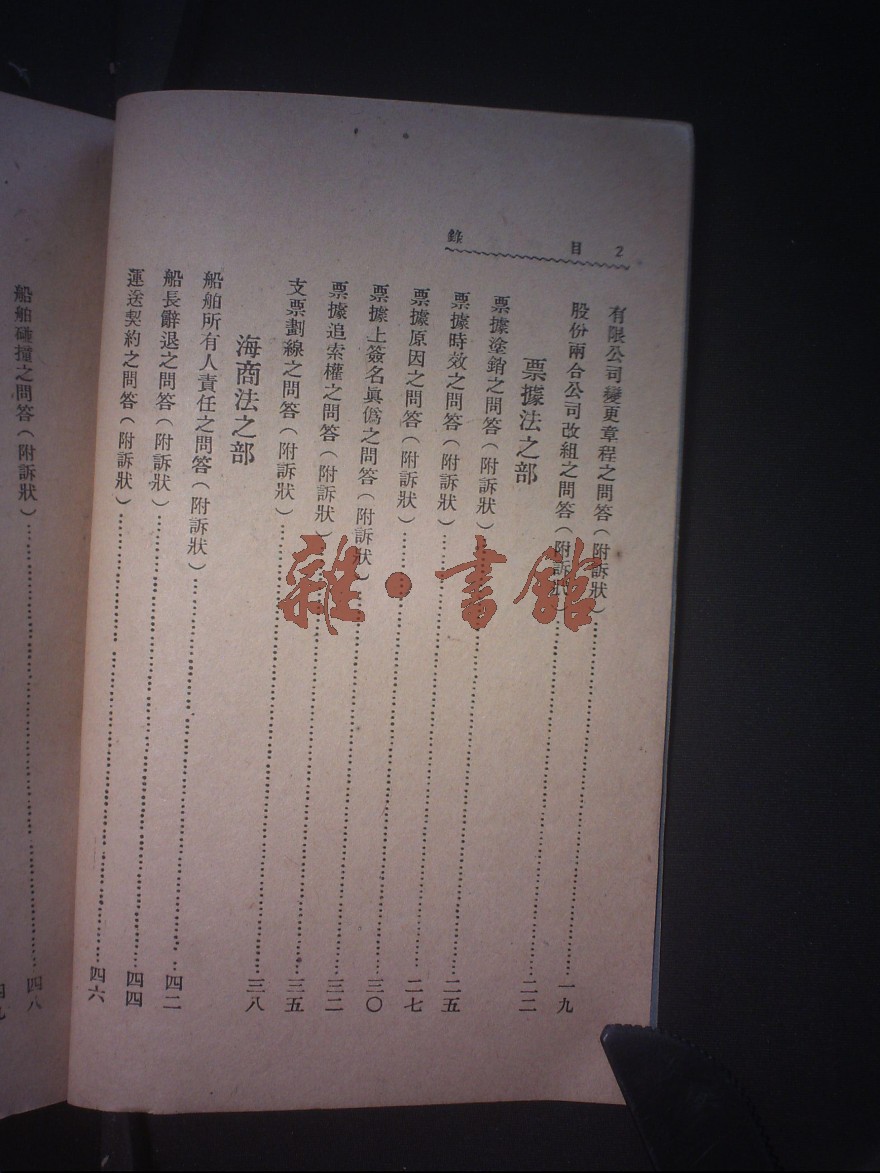 2 目錄
有限公司變更章程之問答(附訴狀)……一九
股份兩合公司改組之問答(附訴狀)……二二
票據法之部
票據塗銷之問答(附訴狀)……二五
票據時效之問答(附訴狀)……二七
票據原因之問答(附訴狀)……三〇
票據上簽名眞僞之問答(附訴狀)……三二
票據追索權之問答(附訴狀)……三五
支票劃線之問答(附訴狀)……三八
海商法之部
船舶所有人責任之問答(附訴狀)……四二
船長辭退之問答(附訴狀)……四四
運送契約之問答(附訴狀)……四六
船舶碰撞之問答(附訴狀)……四八
雜·書館